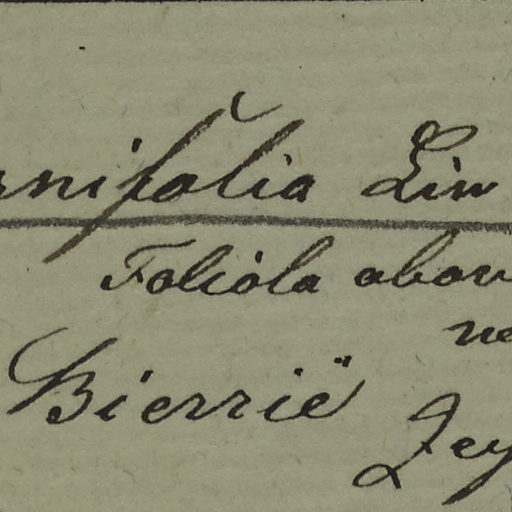 rnifolia Lin
Foliola obov
ne
Bierrië
Zey